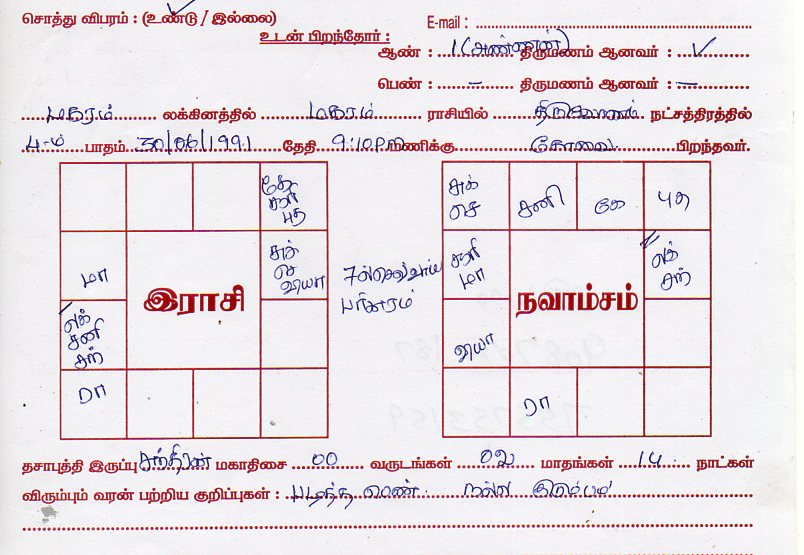 சொத்து விபரம் : (உண்டு / இல்லை)
E-mail :
உடன் பிறந்தோர் :
ஆண் : 1 (அண்ணன்) திருமணம் ஆனவர் : ✓
பெண் : – திருமணம் ஆனவர் : –
மகரம் லக்கினத்தில் மகரம் ராசியில் திருவோணம் நட்சத்திரத்தில்
4-ம் பாதம் 30/06/1991 தேதி 9:10 P.M மணிக்கு கோவை பிறந்தவர்.
கே
சூரி
புத
மா
சுக்
செ
வியா
லக்
சனி
சந்
ரா
இராசி
7ல் செவ்வாய்
பரிகாரம்
சுக்
செ
சனி
கே
புத
சூரி
மா
லக்
சந்
வியா
ரா
நவாம்சம்
தசாபுத்தி இருப்பு சந்திரன் மகாதிசை 00 வருடங்கள் 02 மாதங்கள் 14 நாட்கள்
விரும்பும் வரன் பற்றிய குறிப்புகள் : படித்த பெண் நல்ல குடும்பம்